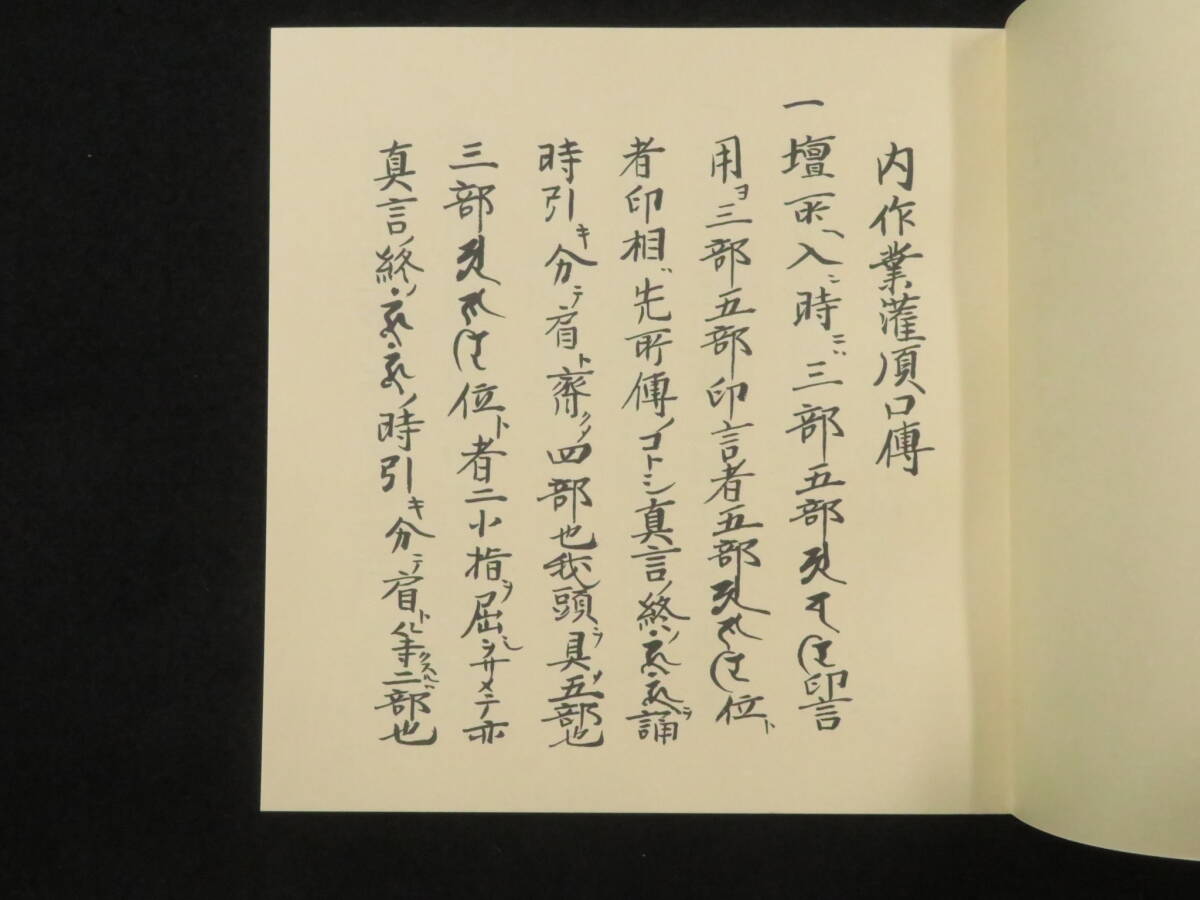 内作業灌頂口傳
一壇所ヘ入ン時ニハ三部五部印言
用ヨ三部五部印言者五部位ト
者印相ハ先所傳ノコトシ真言ノ終ノ誦
時引キ分テ肩ト齊クノ四部也我頭ヲ具ソ五部也
三部位ト者二小指ヲ屈シヲサメテ亦
真言ノ終ノノ時引キ分テ肩ト二部也